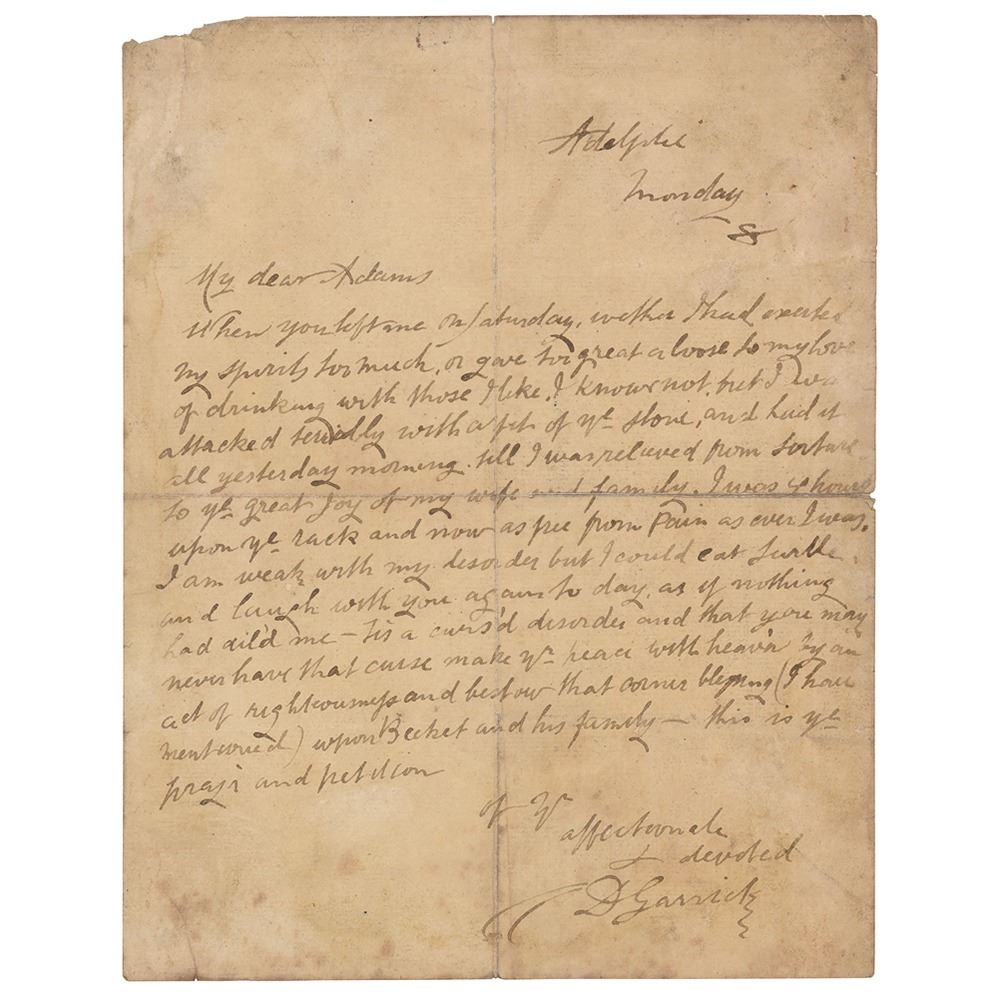 Adelphi
Monday
8
My dear Adams
When you left me on Saturday, wether I had exerted
my spirits too much, or gave too great a loose to my love
of drinking with those I like, I know not, but I was
attacked terribly with a fit of ye stone, and had it
all yesterday morning. till I was relieved from torture
to ye great Joy of my wife and family. I was 4 hours
upon ye rack and now as free from Pain as ever I was.
I am weak with my disorder but I could eat Turtle
and laugh with you again to day, as if nothing
had ail'd me — 'tis a curs'd disorder and that you may
never have that curse make yr peace with heav'n by an
act of righteousness and bestow that corner blessing (I have
mention'd) upon Becket and his family — this is ye
pray'r and petition
of Yr
affectionate
& devoted
D Garrick